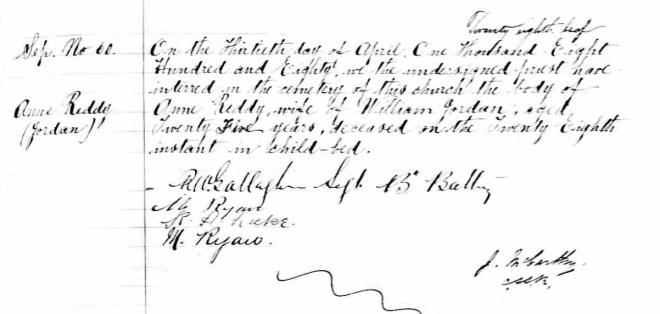 Twenty eighth
Sep. No 60.
Anne Reddy
(Jordan)
On the Thirtieth day of April, One Thousand Eight
Hundred and Eighty, we the undersigned priest have
interred in the cemetery of this church the body of
Anne Reddy, wife of William Jordan, aged
Twenty Five years, deceased on the Twenty Eighth
instant in child-bed.
Gallagher Sgt. "B" Batty
M. Ryan
M. Ryan.
J. McCarthy